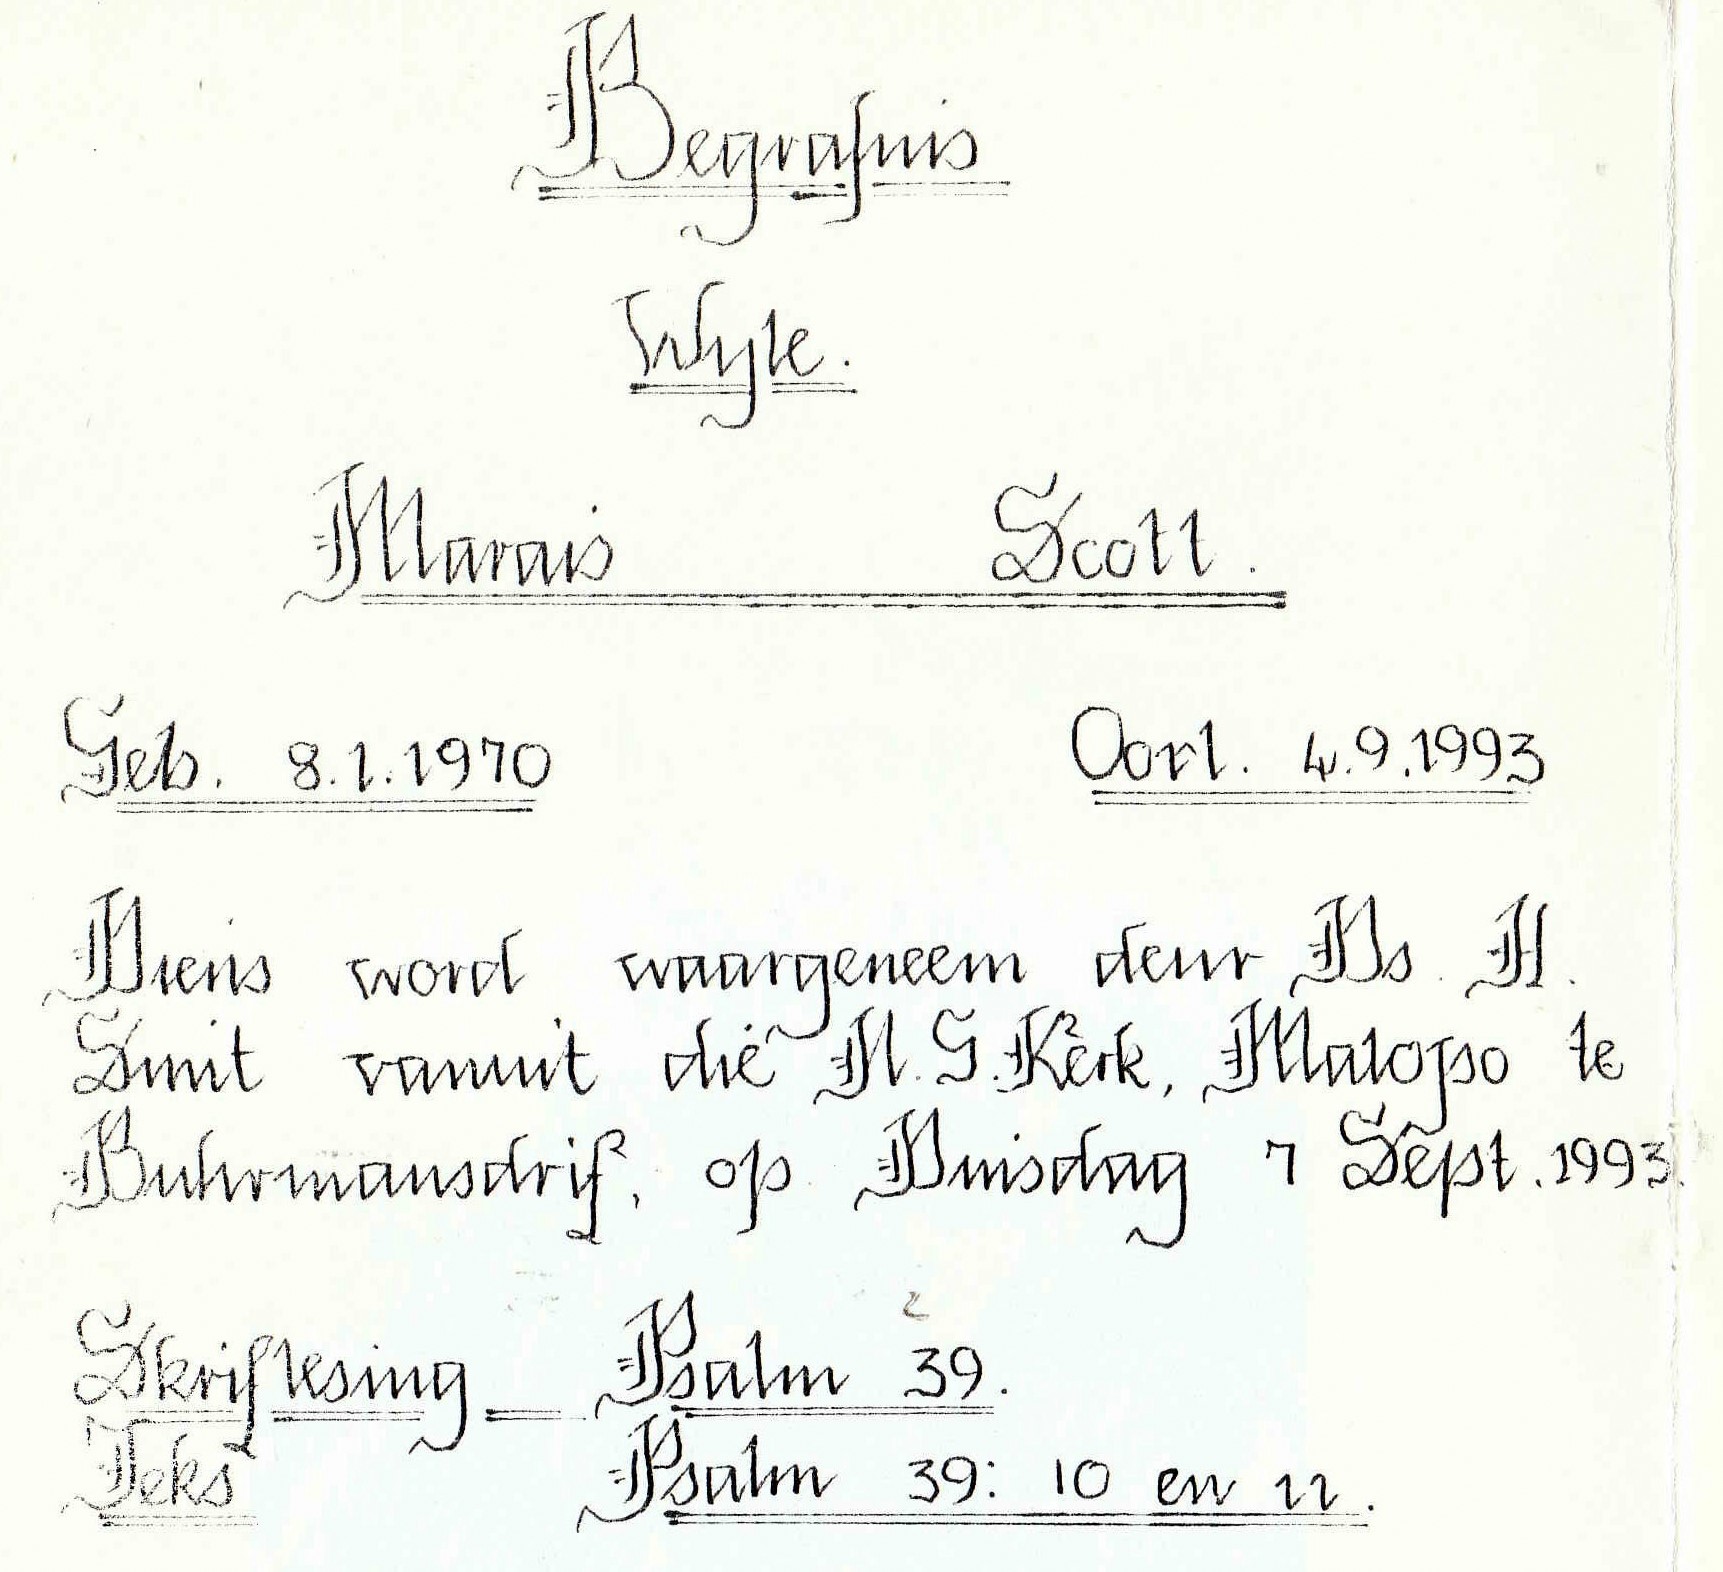 Begrafnis
Wyle.
Marais Scott.
Geb. 8.1.1970 Oorl. 4.9.1993
Diens word waargeneem deur Ds. H.
Smit vanuit die N.G. Kerk, Matopo te
Buhrmansdrif, op Duisdag 7 Sept. 1993
Skriflesing — Psalm 39.
Teks Psalm 39: 10 en 11.